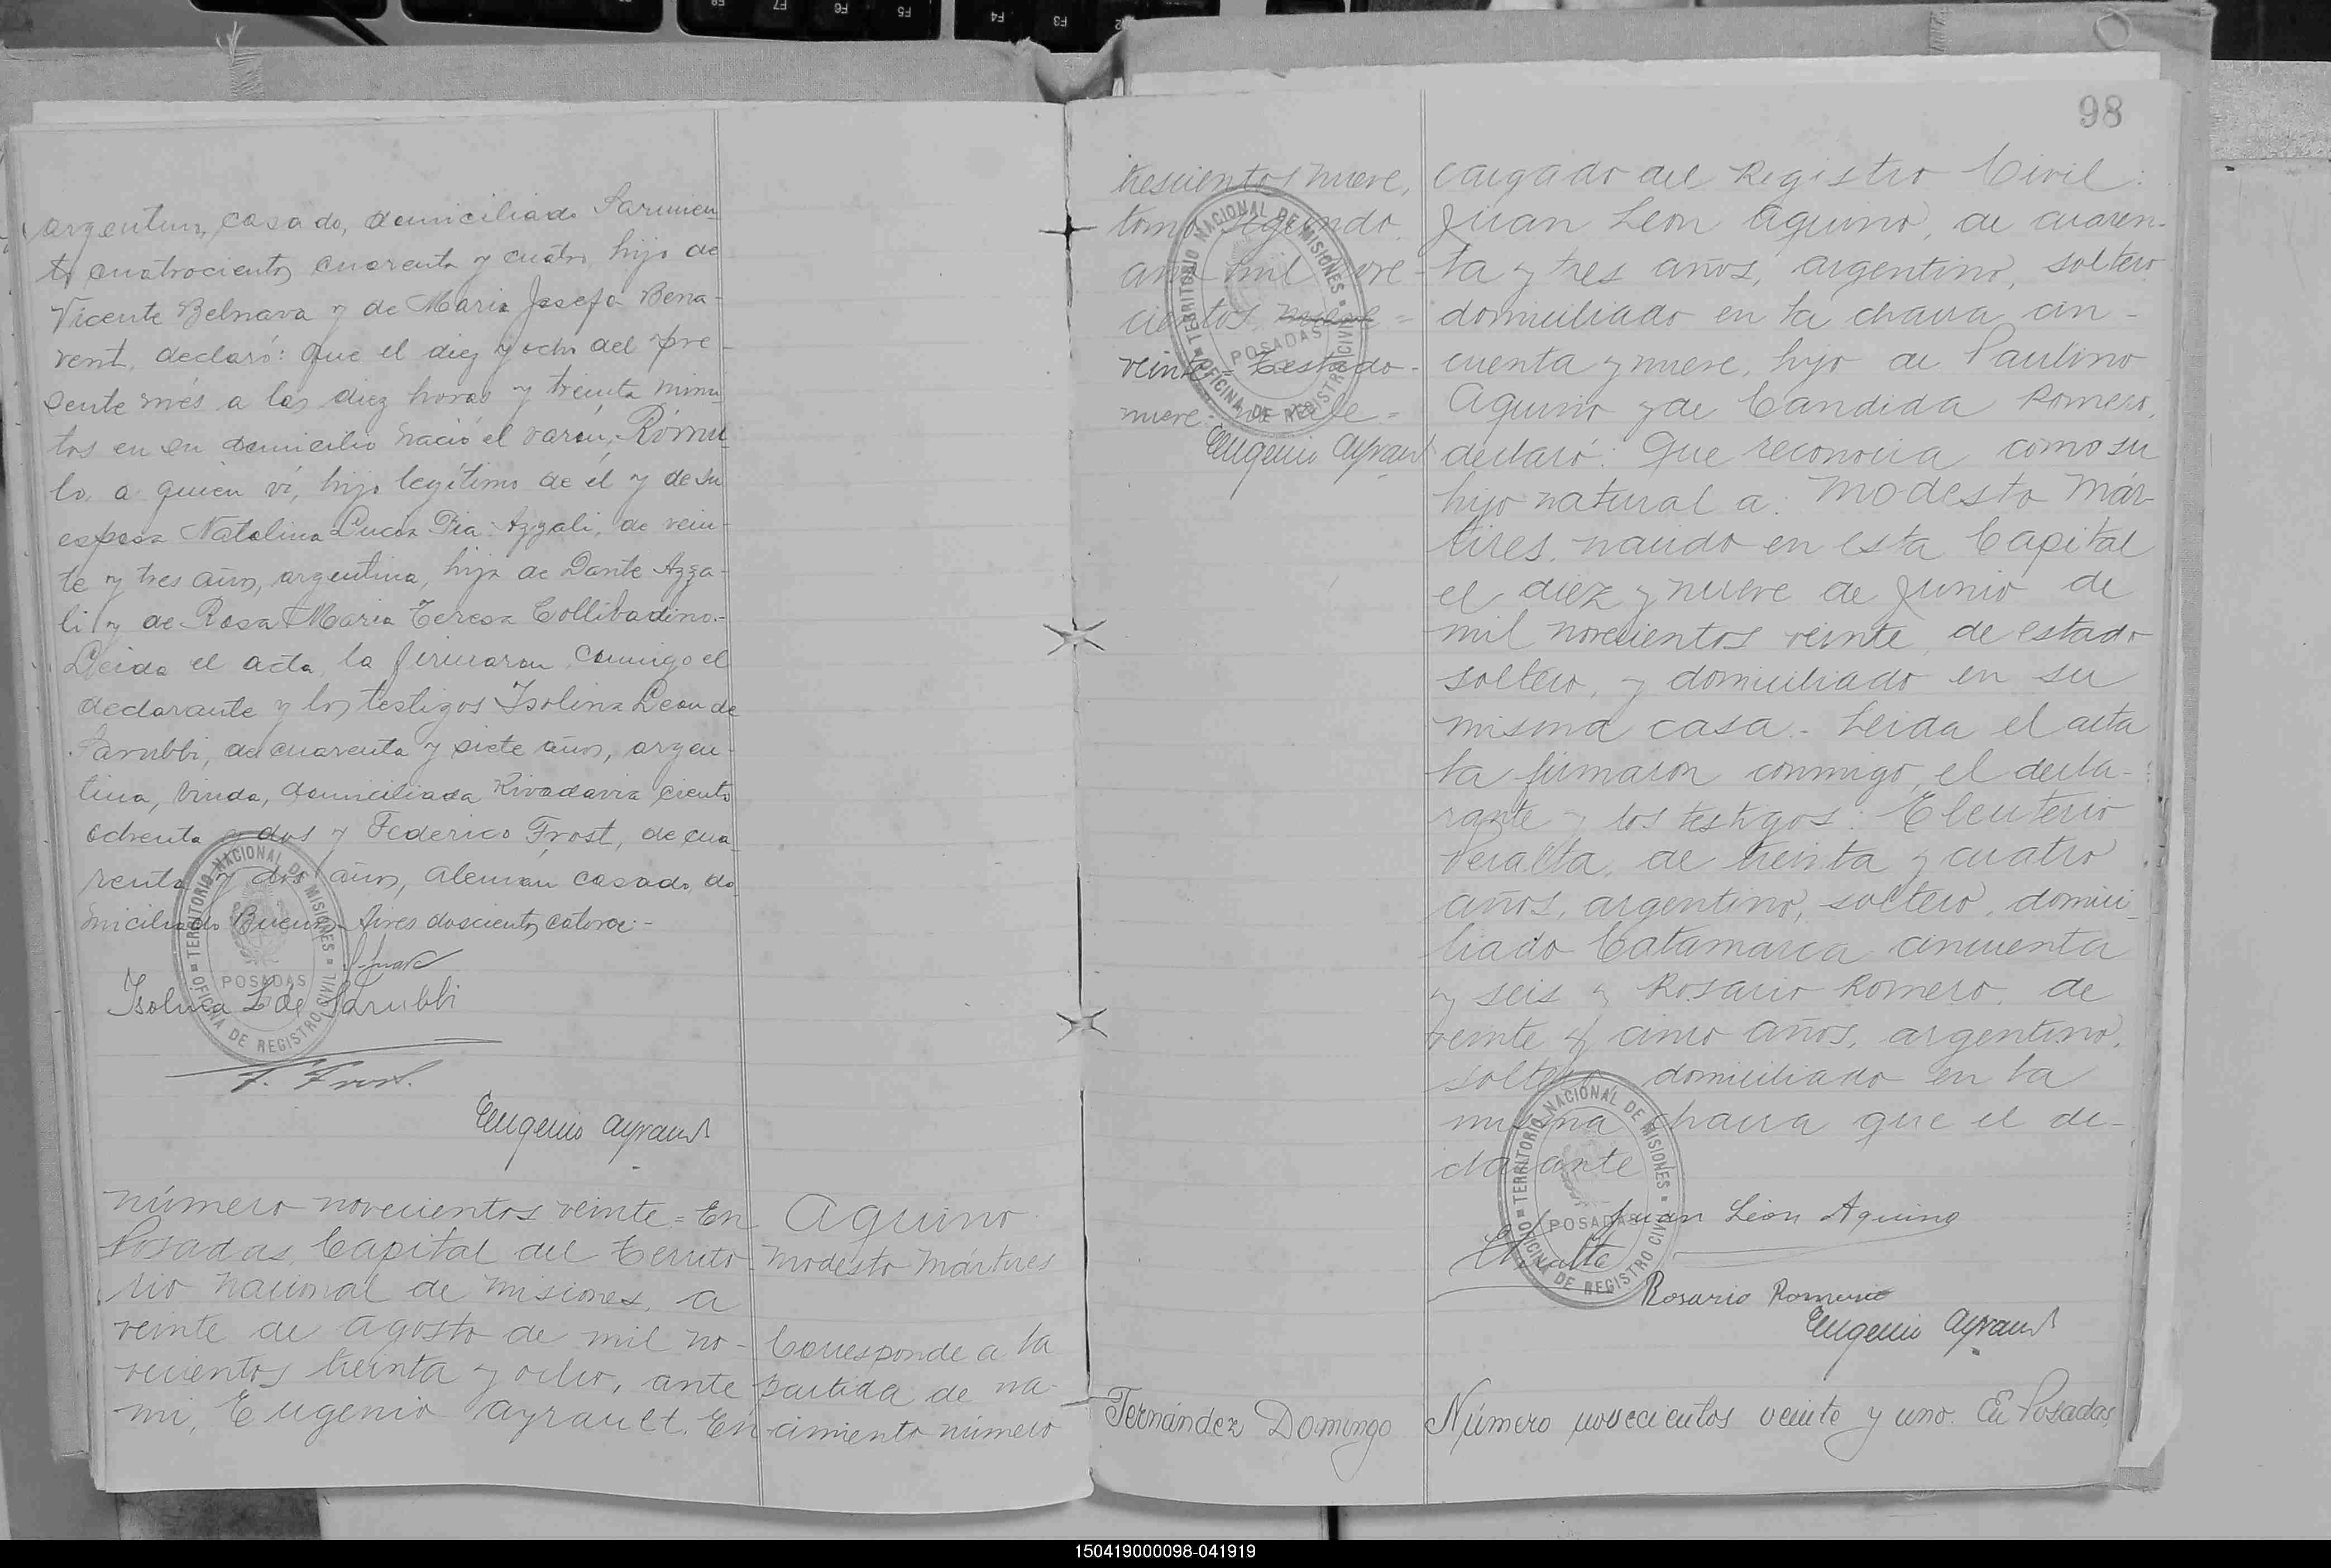 argentino, casado, domiciliado Sarmien
to cuatrocientos cuarenta y cuatro, hijo de
Vicente Belnava y de Maria Josefa Bena-
vent, declaró: Que el diez y ocho del pre-
sente més a las diez horas y treinta minu
tos en su domicilio nació el varón, Rómu
lo, a quien ví, hijo legítimo de él y de su
esposa Natalina Lucia Pia Azzali, de vein-
te y tres años, argentina, hija de Dante Azza-
li y de Rosa Maria Teresa Collivadino.-
Leida el acta, la firmaron conmigo el
declarante y los testigos Isolina Leon de
Sarubbi, de cuarenta y siete años, argen-
tina, viuda, domiciliada Rivadavia ciento
ochenta y dos y Federico Frost, de cua
renta y dos años, Alemán casado, do
miciliado Buenos Aires doscientos catorce.-
Isolina L de Sarubbi
F. Frost.
Eugenio Ayrault
TERRITORIO NACIONAL DE MISIONES
POSADAS
OFICINA DE REGISTRO CIVIL
número novecientos veinte = En
Posadas, Capital del Territo-
rio Nacional de Misiones, a
veinte de Agosto de mil no-
vecientos treinta y ocho, ante
mi, Eugenio Ayrault, En
Aquino
Modesto Mártires
Corresponde a la
partida de na-
cimiento número
98
trescientos nueve,
tomo segundo
año mil nove-
cientos nueve =
veinte = Testado-
nueve: no vale =
Eugenio Ayrault
TERRITORIO NACIONAL DE MISIONES
POSADAS
OFICINA DE REGISTRO CIVIL
cargado del Registro Civil:
Juan Leon Aquino, de cuaren-
ta y tres años, argentino, soltero
domiciliado en la chacra cin-
cuenta y nueve, hijo de Paulino
Aquino y de Candida Romero,
declaró: Que reconocia como su
hijo natural a: Modesto Már-
tires, nacido en esta Capital
el diez y nueve de Junio de
mil novecientos veinte, de estado
soltero, y domiciliado en su
misma casa.- Leida el acta
la firmaron conmigo, el decla-
rante y los testigos: Eleuterio
Peralta, de treinta y cuatro
años, argentino, soltero, domici-
liado Catamarca cincuenta
y seis y Rosario Romero, de
veinte y cinco años, argentino,
soltero, domiciliado en la
misma chacra que el de-
clarante
Juan León Aquino
EPeralta
Rosario Romero
Eugenio Ayrault
TERRITORIO NACIONAL DE MISIONES
POSADAS
OFICINA DE REGISTRO CIVIL
Fernández Domingo
Número novecientos veinte y uno. En Posadas
150419000098-041919